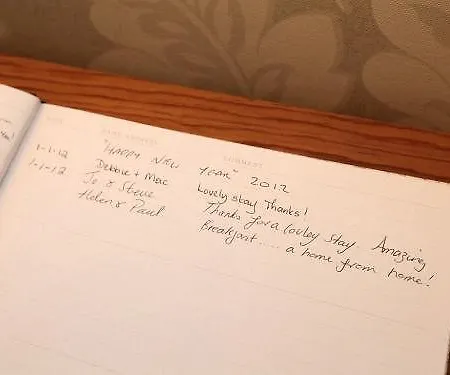 DATE NAME & ADDRESS COMMENT
"HAPPY NEW YEAR" 2012
1-1-12 Debbie + Mac Lovely stay Thanks!
1-1-12 Jo & Steve Thanks for a lovley stay. Amazing
Helen & Paul Breakfast..... a home from home!